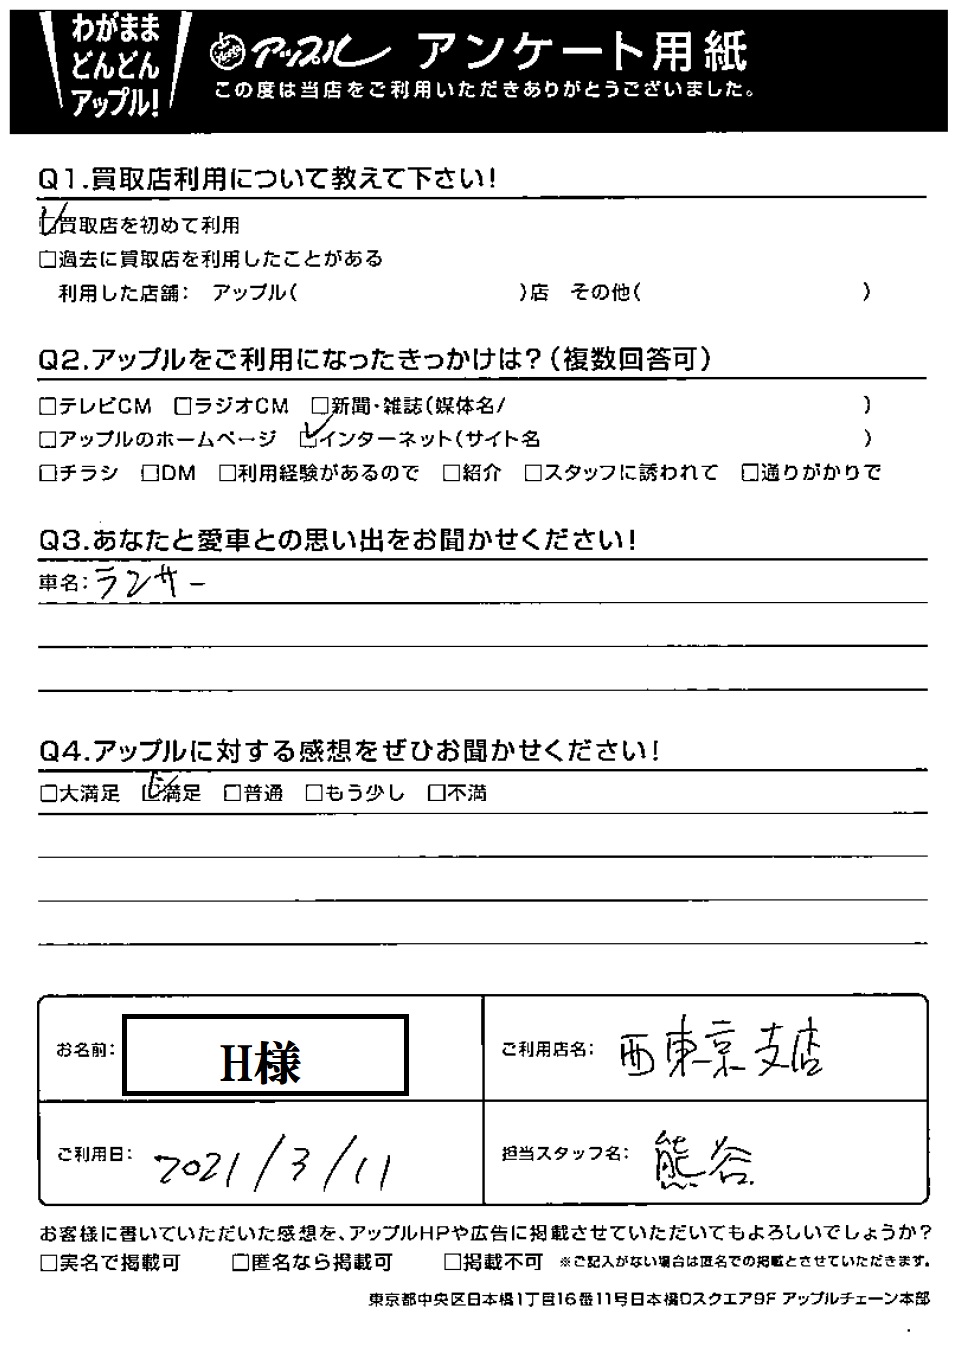 わがまま
どんどん
アップル!
アップル アンケート用紙
この度は当店をご利用いただきありがとうございました。
Q1.買取店利用について教えて下さい!
☑買取店を初めて利用
□過去に買取店を利用したことがある
利用した店舗: アップル( )店 その他( )
Q2.アップルをご利用になったきっかけは?(複数回答可)
□テレビCM □ラジオCM □新聞・雑誌(媒体名/ )
□アップルのホームページ ☑インターネット(サイト名 )
□チラシ □DM □利用経験があるので □紹介 □スタッフに誘われて □通りがかりで
Q3.あなたと愛車との思い出をお聞かせください!
車名:ランサー
Q4.アップルに対する感想をぜひお聞かせください!
□大満足 ☑満足 □普通 □もう少し □不満
お名前: H様
ご利用店名: 西東京支店
ご利用日: 2021/3/11
担当スタッフ名: 熊谷
お客様に書いていただいた感想を、アップルHPや広告に掲載させていただいてもよろしいでしょうか?
□実名で掲載可 □匿名なら掲載可 □掲載不可 ※ご記入がない場合は匿名での掲載とさせていただきます。
東京都中央区日本橋1丁目16番11号日本橋Dスクエア9F アップルチェーン本部